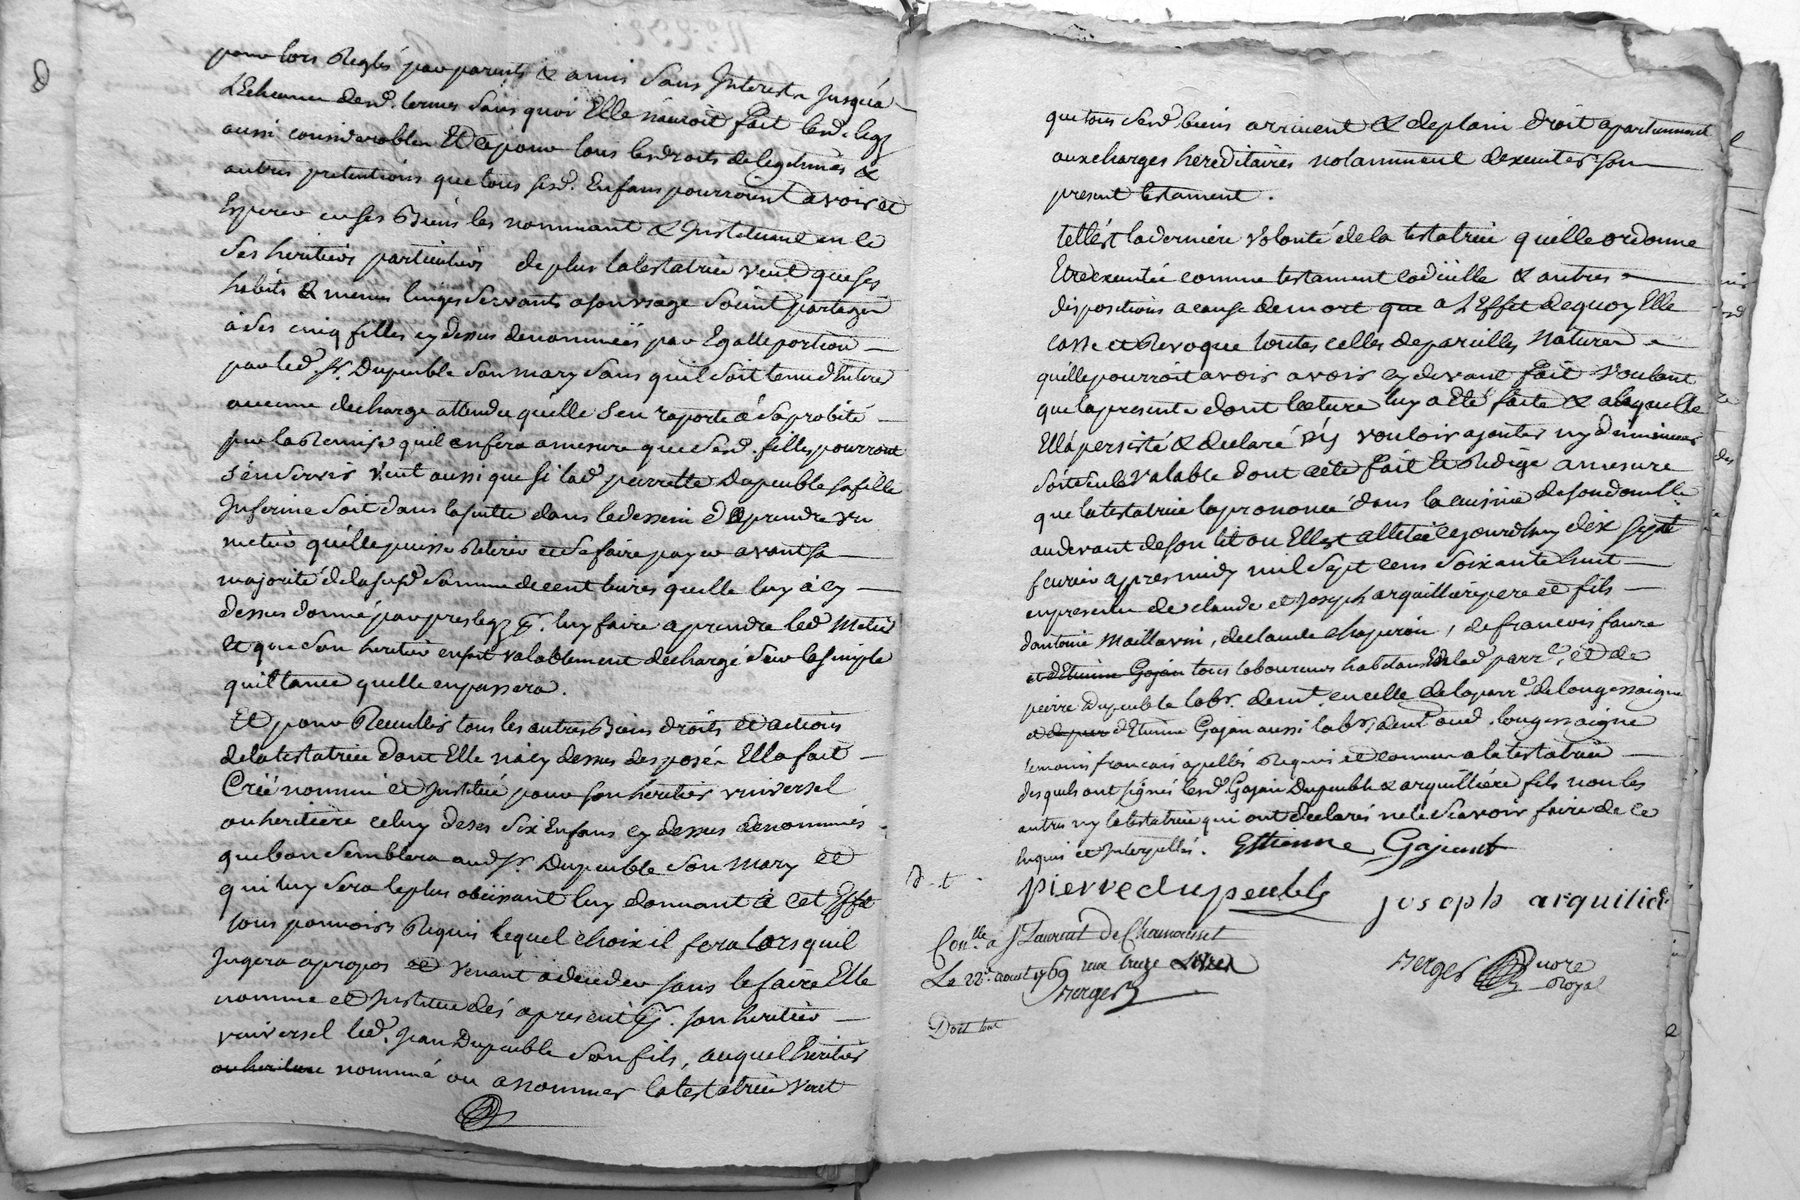 pour lors Reglés par parents & amis Sans Interest Jusqu'a
L'Echeance desd. termes Sans quoi Elle n'auroit fait lesd. legz
aussi considerables Et ce pour tous les droits de legitimes &
autres pretentions que tous sesd. Enfans pourroient avoir et
Esperer en ses Biens les nommant & Instituant en ce
Ses heritiers particuliers de plus la testatrice veut que ses
habits & menus linges Servants a son usage Soint partagés
à Ses cinq filles cy dessus denommées par Egalle portion
par led. Sr. Dupeuble Son mary Sans quil Soit tenu d'Entrer
aucune decharge attendu qu'elle S'en raporte à Sa probité
pour la Remise quil en fera a mesure que Sesd. filles pourront
S'en Servir veut aussi que Si lad. pierrette Dupeuble Sa fille
Infirme Soit dans la suitte dans le dessein d'aprendre un
metier qu'elle puisse Retirer et Se faire payer avant Sa
majorité de la susd. Somme de cent livres quelle luy à cy
dessus donné par pres legz pr. luy faire aprendre led. Metier
Et que Son heritier en soit valablement dechargé Sur la Simple
quittance quelle en passera.
Et pour Recueillir tous les autres Biens droits et actions
de la testatrice dont Elle n'a cy dessus disposé Ell a fait
Créé nommé et Institué pour Son heritier universel
ou heritiere celuy de ses Six Enfans cy dessus denommés
que bon Semblera aud. Sr. Dupeuble Son mary et
qui luy Sera le plus obeissant luy donnant à cet Effet
tous pouvoirs Requis lequel choix il fera lorsquil
Jugera apropos et venant a deceder sans le faire Elle
nomme et Institue dés apresent pr. son heritier
universel led. Jean Dupeuble Son fils, auquel heritier
ou heritiere nommé ou a nommer la testatrice veut
que tous Sesd. biens arrivent & de plain droit apartiennent
aux charges hereditaires notamment d'executer Son
present testament.
telle est la derniere volonté de la testatrice quelle ordonne
Etre executée comme testament codicille & autres
dispositions a cause de mort que a L'Effet de quoy Elle
casse et Revoque toutes celles de pareilles Natures
quelle pourroit avoir avoir cy devant fait voulant
que la presente dont lecture luy a Eté faite & a laquelle
Ell'a persisté & declaré n'y vouloir ajouter ny diminuer
Soit Seule valable dont acte fait et Redigé a mesure
que la testatrice l'a prononcé dans la cuisine de Son domicille
au devant de Son lit ou Elle est allitée ce jourdhuy dix Sept
fevrier apres midy mil Sept cens Soixante huit
en presence de claude et Joseph arquilliére pere et fils
d'antoine Maillavin, de claude chaperon, de francois faure
et d'Etienne Gajan tous laboureurs habitans de lad. parr.e, et de
pierre Dupeuble labr. demt. en celle de la parr.e de longessaigne
d'Etienne Gajan aussi labr. demt. aud. longessaigne
temoins francais apellés Requis et connus a la testatrice
desquels ont signés lesd. Gajan Dupeuble & arquilliére fils non les
autres ny la testatrice qui ont declarés ne le Scavoir faire de ce
Enquis et Interpellés. Esttienne Gajant
d. t.
pierre dupeuble joseph arquiliere
Conllé a St Laurent De Chamousset
Le 22e. aout 1769 reçu treize
Berger
Berger nore
Royal
Doit tout